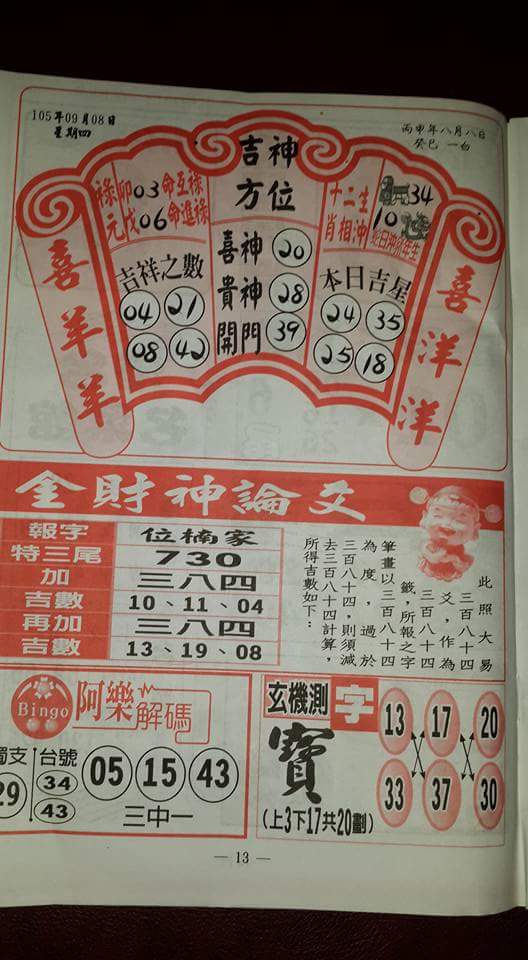 105年09月08日
星期四
丙申年八月八日
癸巳 一白
吉神
方位
祿元
卯03命互祿
戌06命進祿
十二生
肖相沖
34
10
吉祥之數
04 21
08 42
喜神 20
貴神 28
開門 39
本日吉星
24 35
25 18
喜羊羊
喜洋洋
金財神論爻
報字 位楠家
特三尾 730
加 三八四
吉數 10、11、04
再加 三八四
吉數 13、19、08
此照大易
三百八十四
爻,作為
三百八十四
籤,所報之字
筆畫以三百八十四
為度,過於
三百八十四,則須減
去三百八十四計算,
所得吉數如下:
Bingo
阿樂解碼
獨支 29
台號 34 43
05 15 43
三中一
玄機測字
寶
(上3下17共20劃)
13 17 20
33 37 30
— 13 —